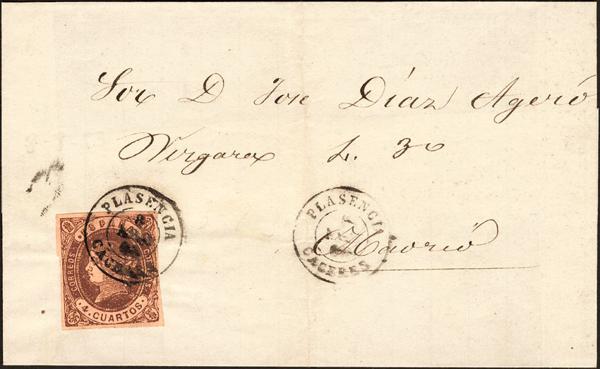 Sor D Jose Díaz Agero
Vergara
Madrid
PLASENCIA
CACERES
PLASENCIA
CACERES
CORREOS
4 CUARTOS